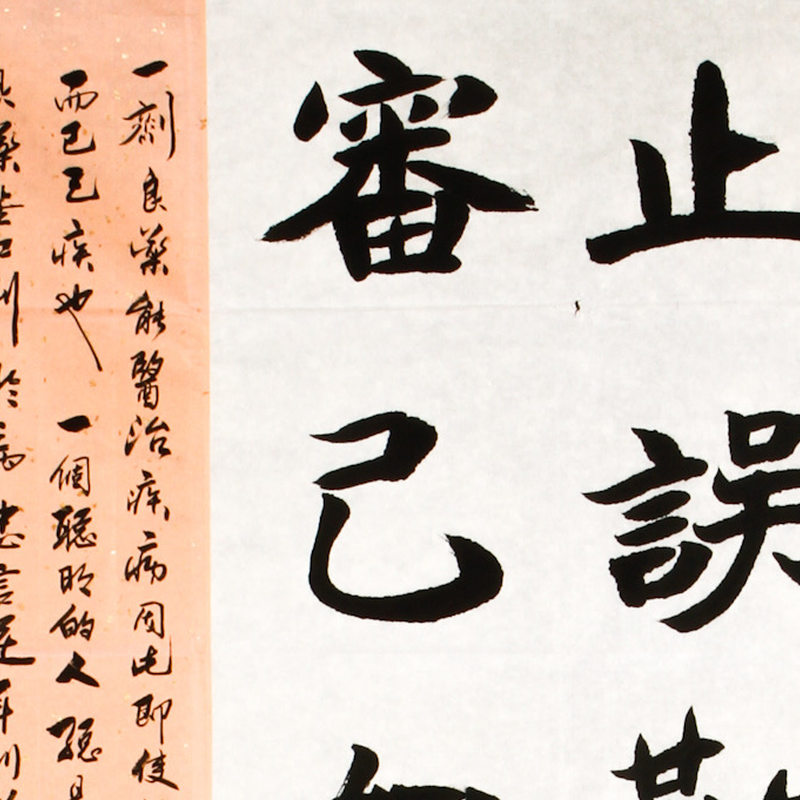 止誤
審己
一劑良藥能醫治疾病因此即使
而已已疾也 一個聰明的人聽
良藥苦口利於病忠言逆耳利